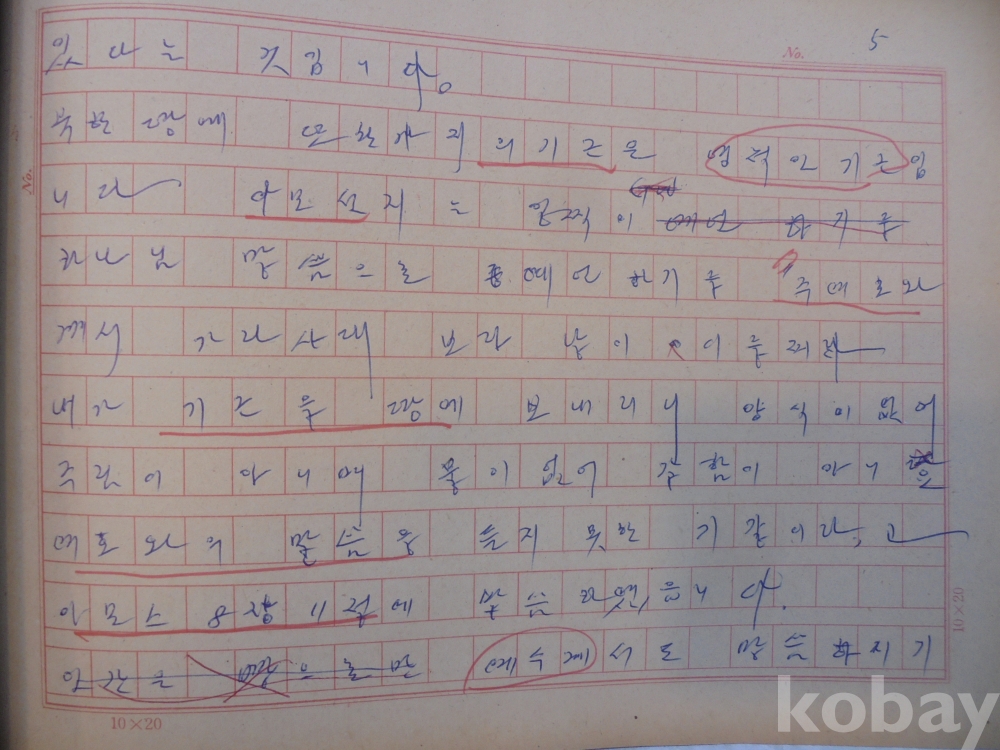 No. 5
있다는 것입니다.
북한땅에 또한가지의 기근은 영적인 기근입
니다 아모선지는 일찍이
하나님 말씀으로 예언하기를 주 여호와
께서 가라사대 보라 날이 이를지라
내가 기근을 땅에 보내리니 양식이 없어
주림이 아니며 물이 없어 갈함이 아니요
여호와의 말씀을 듣지 못한 기갈이라, 고
아모스 8장 11절에 말씀하였습니다.
예수께서도 말씀하시기
No.
10×20
10×20
kobay